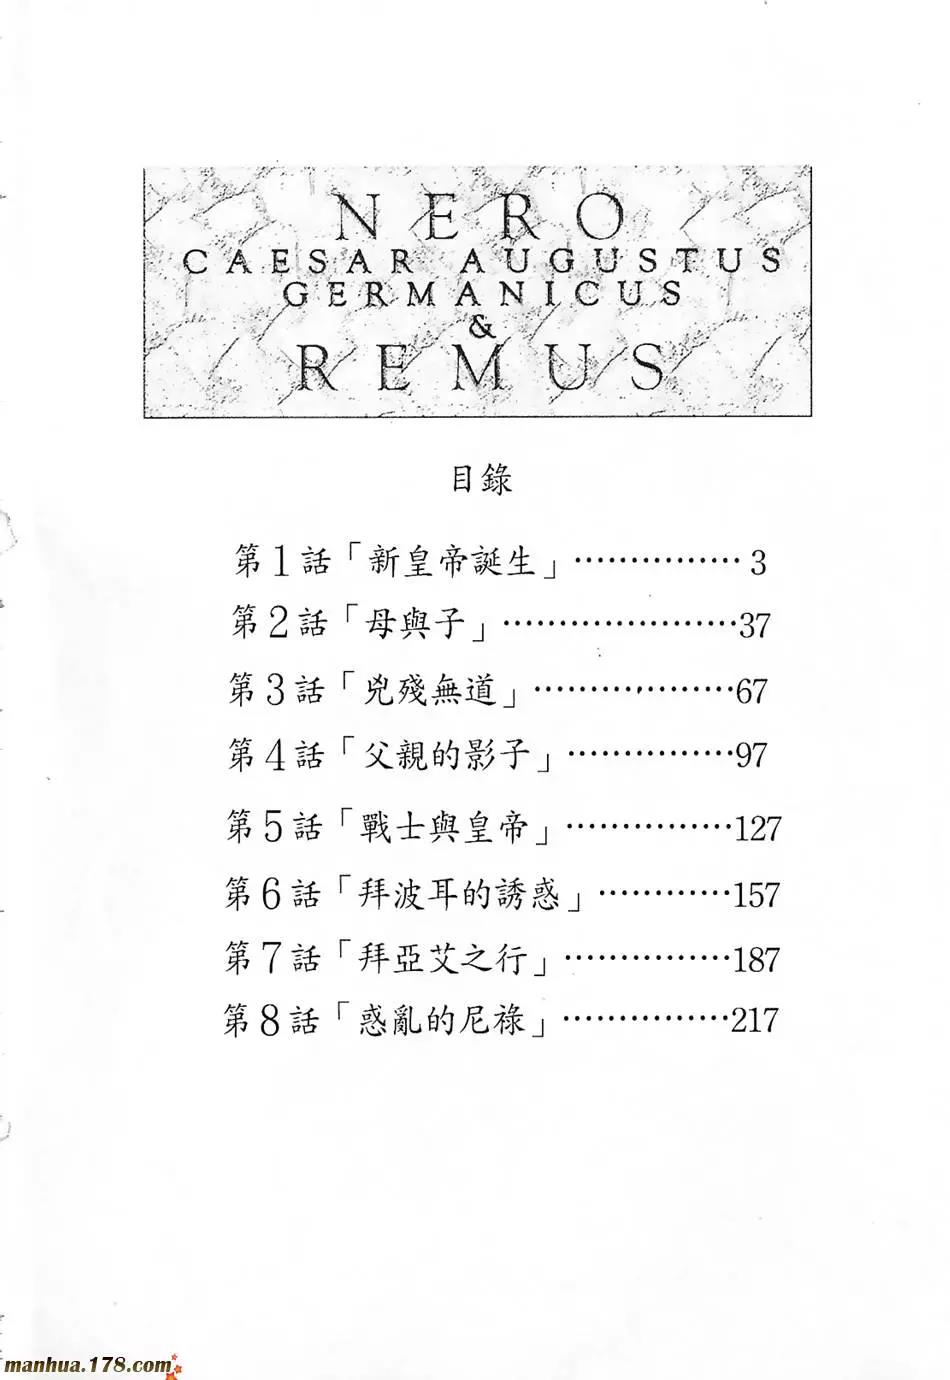 NERO
CAESAR AUGUSTUS
GERMANICUS
&
REMUS
目錄
第1話「新皇帝誕生」……………3
第2話「母與子」…………………37
第3話「兇殘無道」………………67
第4話「父親的影子」……………97
第5話「戰士與皇帝」……………127
第6話「拜波耳的誘惑」…………157
第7話「拜亞艾之行」……………187
第8話「惑亂的尼祿」……………217
manhua.178.com